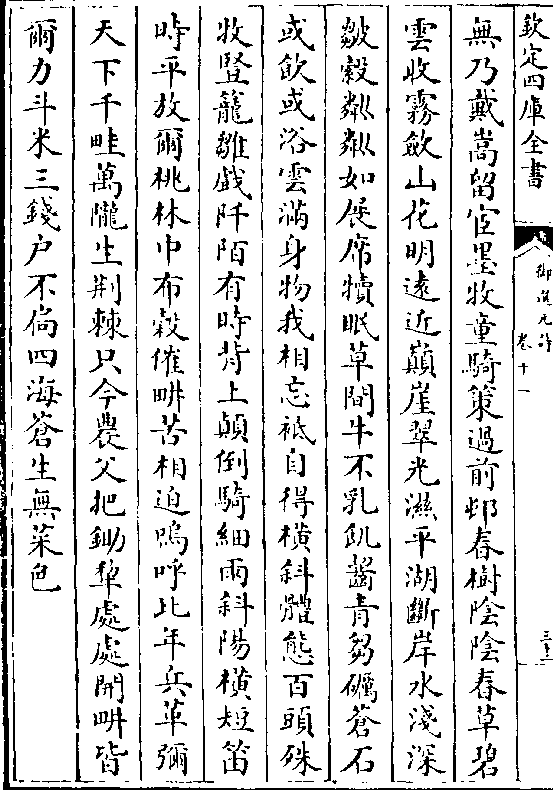 欽定四庫全書
御選元詩
卷十一
三十二
無乃戴嵩留宦墨牧童騎策過前邨春樹陰陰春草碧
雲收霧斂山花明遠近巔崖翠光滋平湖斷岸水淺深
皺縠粼粼如展席犢眠草間牛不乳飢齧青芻礪蒼石
或飲或浴雲滿身物我相忘祗自得橫斜體態百頭殊
牧豎籠雛戲阡陌有時背上顛倒騎細雨斜陽橫短笛
時平放爾桃林中布穀催畊苦相迫嗚呼比年兵革彌
天下千畦萬隴生荆棘只今農父把鋤犂處處開畊皆
爾力斗米三錢户不扃四海蒼生無菜色